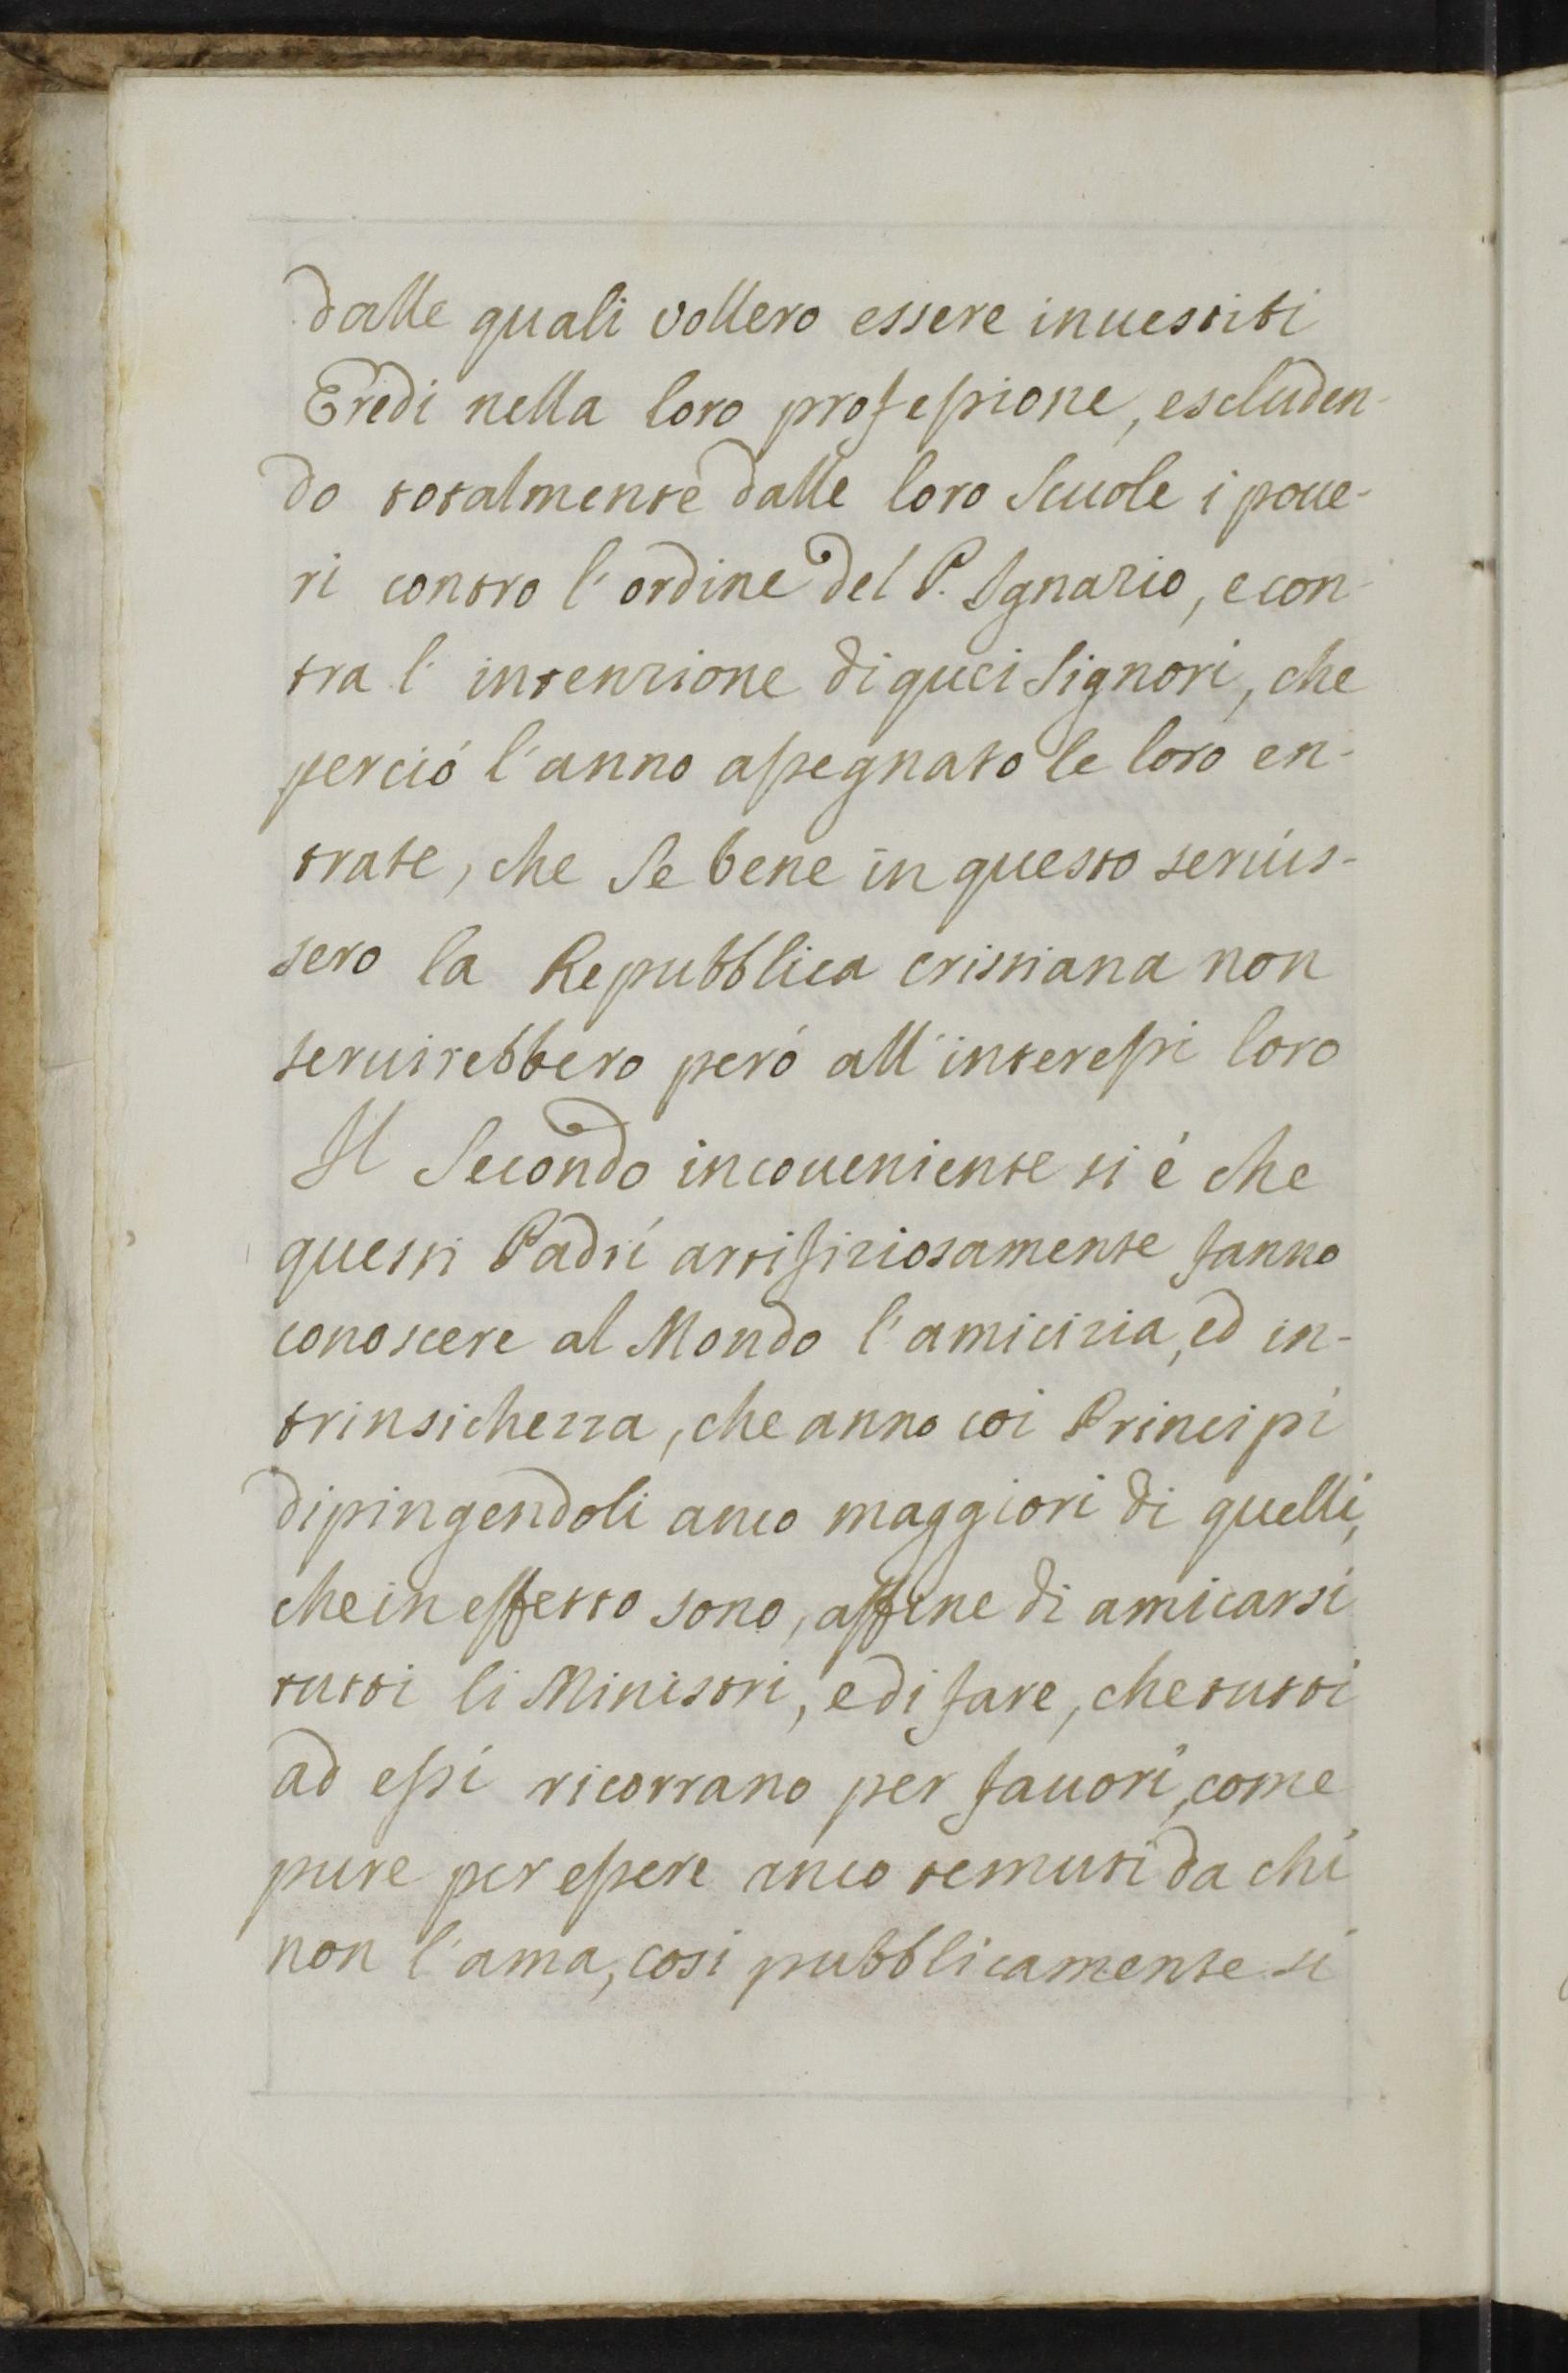 dalle quali vollero essere inuestiti
Eredi nella loro professione, escluden-
do totalmente dalle loro Scuole i poue-
ri contro l'ordine del P. Ignazio, e con-
tra l'intenzione di quei Signori, che
perció l'anno assegnato le loro en-
trate, che se bene in questo seruis-
sero la Repubblica cristiana non
seruirebbero peró all'interessi loro
Il Secondo incoueniente si é che
questi Padri artifiziosamente fanno
conoscere al Mondo l'amicizia, ed in-
trinsichezza, che anno coi Principi
dipingendoli anco maggiori di quelli,
che in effetto sono, affine di amicarsi
tutti li Ministri, e di fare, che tutti
ad essi ricorrano per fauori, come
pure per essere anco temuti da chi
non l'ama, cosi pubblicamente si